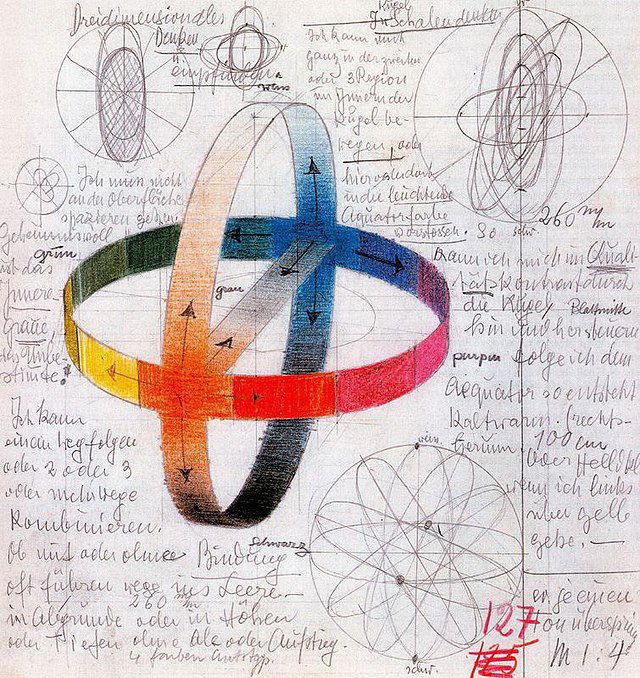 Dreidimensionelles
Denken
empfinden.
weiss
Kugel
In Schalen denken
Ich kann mich
ganz in der zweiten
oder 3 Region
im Innern der
Kugel be-
wegen, oder
hier oder dort
in die leuchtende
Aquatorfarbe
vorstossen. So
schw.
260 mm
Ich muss nicht
an der Oberfläche
spazieren gehen
Geheimnisvoll
grün
ist das
Innere
Graue,
das Unbe-
stimmte!
grau
kann ich mich im Quali-
tätskontrast durch
die Kugel,
Blattmitte
hin und her steuern
purpur
folge ich dem
Aequator so entsteht
Kaltwarm. (rechts-
herum.
100 cm
oder Helldkl
wenn ich links
über gelb
gehe. —
Ich kann
einen Weg folgen
oder 2 oder 3
oder mehr Wege
Kombinieren.
Ob mit oder ohne Bindung
schwarz
weiss
oft führen Wege ins Leere.
260 mm
in Abgründe oder in Höhen
oder Tiefen ohne Ab oder Aufstieg.
4 farben Autotyp.
schw.
127
125
M 1:4